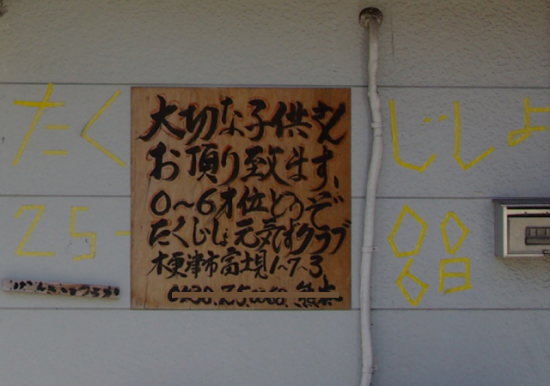 たくじしょ
25-0068
大切な子供さん
お預り致ます、
0〜6才位どうぞ
たくじしょ元気すクラブ
木更津市富士見1-7-3